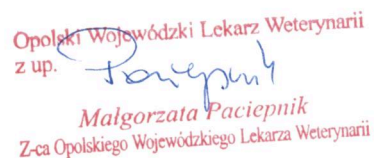 Opolski Wojewódzki Lekarz Weterynarii
z up.
Małgorzata Paciepnik
Z-ca Opolskiego Wojewódzkiego Lekarza Weterynarii